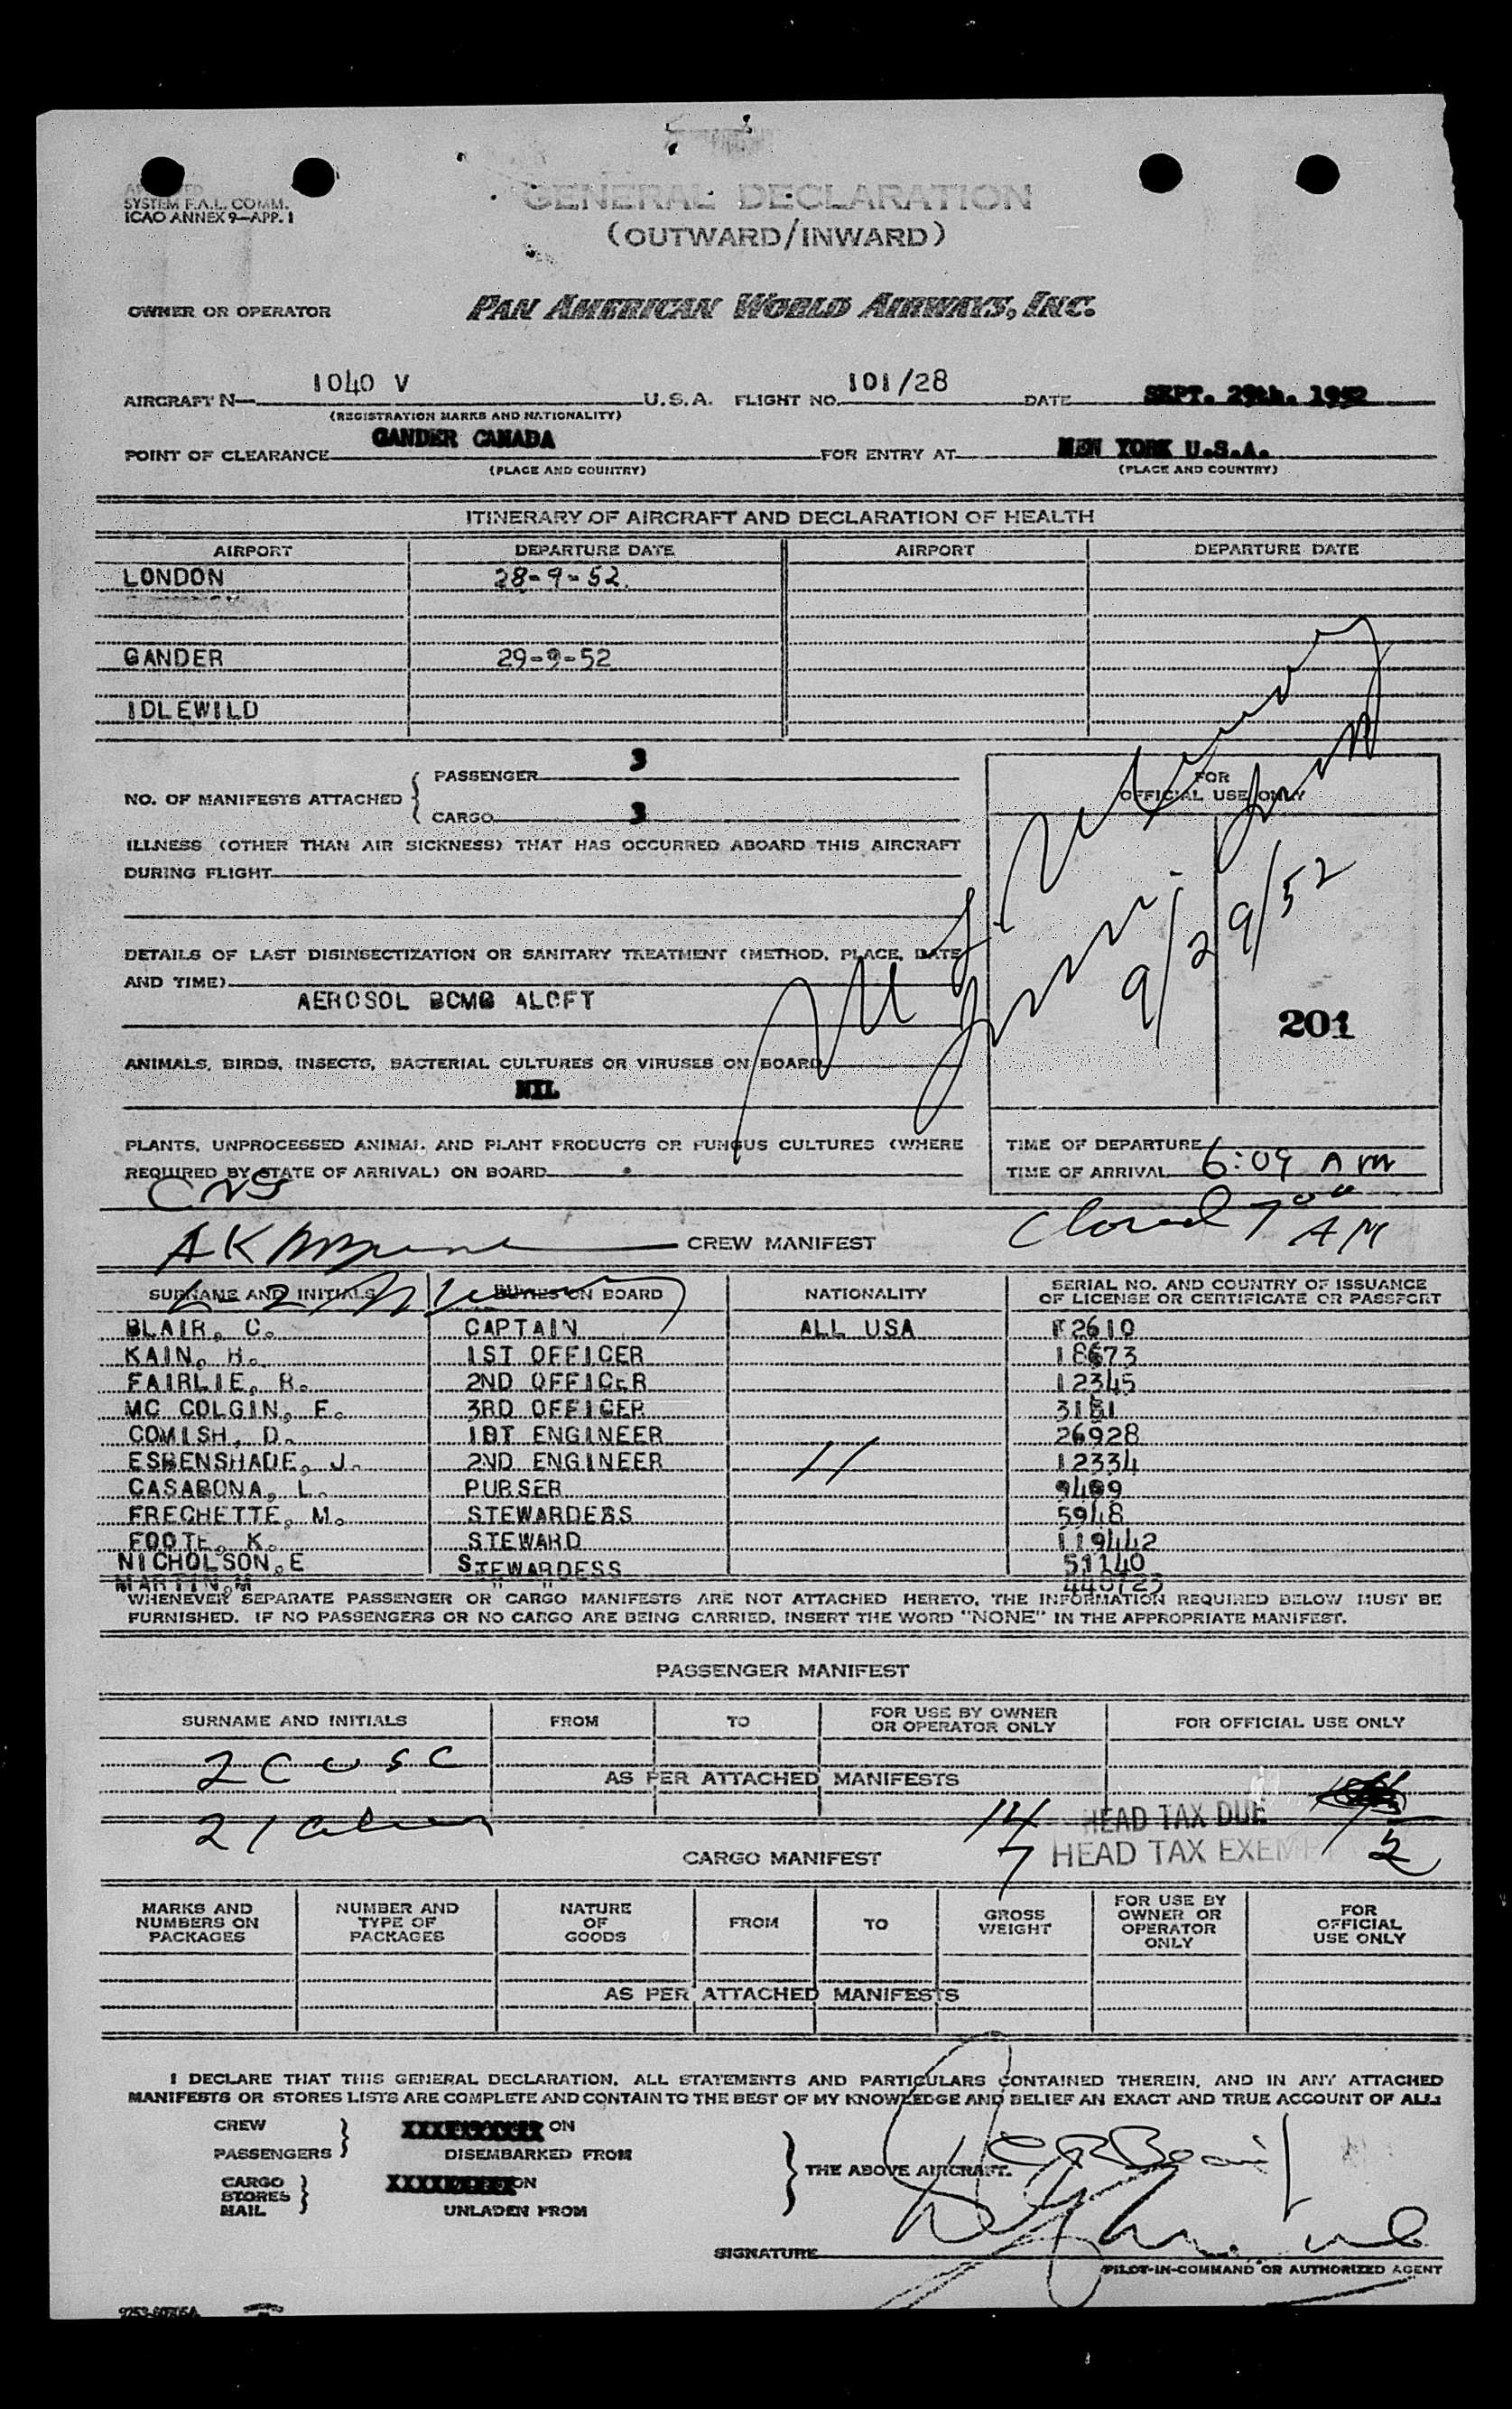 SYSTEM F.A.L. COMM.
ICAO ANNEX 9—APP. 1
GENERAL DECLARATION
(OUTWARD/INWARD)
OWNER OR OPERATOR PAN AMERICAN WORLD AIRWAYS, INC.
AIRCRAFT N— 1040 V U.S.A. FLIGHT NO. 101/28 DATE SEPT. 29th. 1952
(REGISTRATION MARKS AND NATIONALITY)
POINT OF CLEARANCE GANDER CANADA FOR ENTRY AT NEW YORK U.S.A.
(PLACE AND COUNTRY) (PLACE AND COUNTRY)
ITINERARY OF AIRCRAFT AND DECLARATION OF HEALTH
AIRPORT DEPARTURE DATE AIRPORT DEPARTURE DATE
LONDON 28-9-52.
GANDER 29-9-52
IDLEWILD
NO. OF MANIFESTS ATTACHED { PASSENGER 3
CARGO 3
FOR
OFFICIAL USE ONLY
ILLNESS (OTHER THAN AIR SICKNESS) THAT HAS OCCURRED ABOARD THIS AIRCRAFT
DURING FLIGHT
DETAILS OF LAST DISINSECTIZATION OR SANITARY TREATMENT (METHOD, PLACE, DATE
AND TIME)
AEROSOL BOMB ALOFT
9/29/52
201
ANIMALS, BIRDS, INSECTS, BACTERIAL CULTURES OR VIRUSES ON BOARD
NIL
PLANTS, UNPROCESSED ANIMAL AND PLANT PRODUCTS OR FUNGUS CULTURES (WHERE
REQUIRED BY STATE OF ARRIVAL) ON BOARD
TIME OF DEPARTURE
TIME OF ARRIVAL 6:09 AM
Closed 7 00 AM
CREW MANIFEST
SURNAME AND INITIALS DUTIES ON BOARD NATIONALITY SERIAL NO. AND COUNTRY OF ISSUANCE
OF LICENSE OR CERTIFICATE OR PASSPORT
BLAIR, C. CAPTAIN ALL USA F2610
KAIN, H. 1ST OFFICER 18673
FAIRLIE, R. 2ND OFFICER 12345
MC COLGIN, F. 3RD OFFICER 3181
COMISH, D. 1ST ENGINEER 26928
ESBENSHADE, J. 2ND ENGINEER 11 12334
CASABONA, L. PURSER 9409
FRECHETTE, M. STEWARDESS 5948
FOOTE, K. STEWARD 119442
NICHOLSON,E STEWARDESS 51140
MARTIN,M " " 440723
WHENEVER SEPARATE PASSENGER OR CARGO MANIFESTS ARE NOT ATTACHED HERETO, THE INFORMATION REQUIRED BELOW MUST BE
FURNISHED. IF NO PASSENGERS OR NO CARGO ARE BEING CARRIED, INSERT THE WORD "NONE" IN THE APPROPRIATE MANIFEST.
PASSENGER MANIFEST
SURNAME AND INITIALS FROM TO FOR USE BY OWNER
OR OPERATOR ONLY FOR OFFICIAL USE ONLY
2 C USC
AS PER ATTACHED MANIFESTS
21 alien
14 HEAD TAX DUE
7 HEAD TAX EXEMPT
CARGO MANIFEST
MARKS AND
NUMBERS ON
PACKAGES
NUMBER AND
TYPE OF
PACKAGES
NATURE
OF
GOODS
FROM
TO
GROSS
WEIGHT
FOR USE BY
OWNER OR
OPERATOR
ONLY
FOR
OFFICIAL
USE ONLY
AS PER ATTACHED MANIFESTS
I DECLARE THAT THIS GENERAL DECLARATION, ALL STATEMENTS AND PARTICULARS CONTAINED THEREIN, AND IN ANY ATTACHED
MANIFESTS OR STORES LISTS ARE COMPLETE AND CONTAIN TO THE BEST OF MY KNOWLEDGE AND BELIEF AN EXACT AND TRUE ACCOUNT OF ALL:
CREW
PASSENGERS } ON
DISEMBARKED FROM
CARGO
STORES
MAIL } ON
UNLADEN FROM
} THE ABOVE AIRCRAFT.
SIGNATURE
PILOT-IN-COMMAND OR AUTHORIZED AGENT